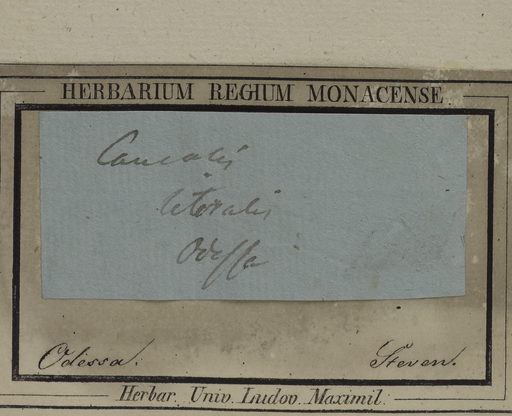 HERBARIUM REGIUM MONACENSE.
Caucalis
litoralis
Odessa
Odessa. Steven.
Herbar. Univ. Ludov. Maximil.